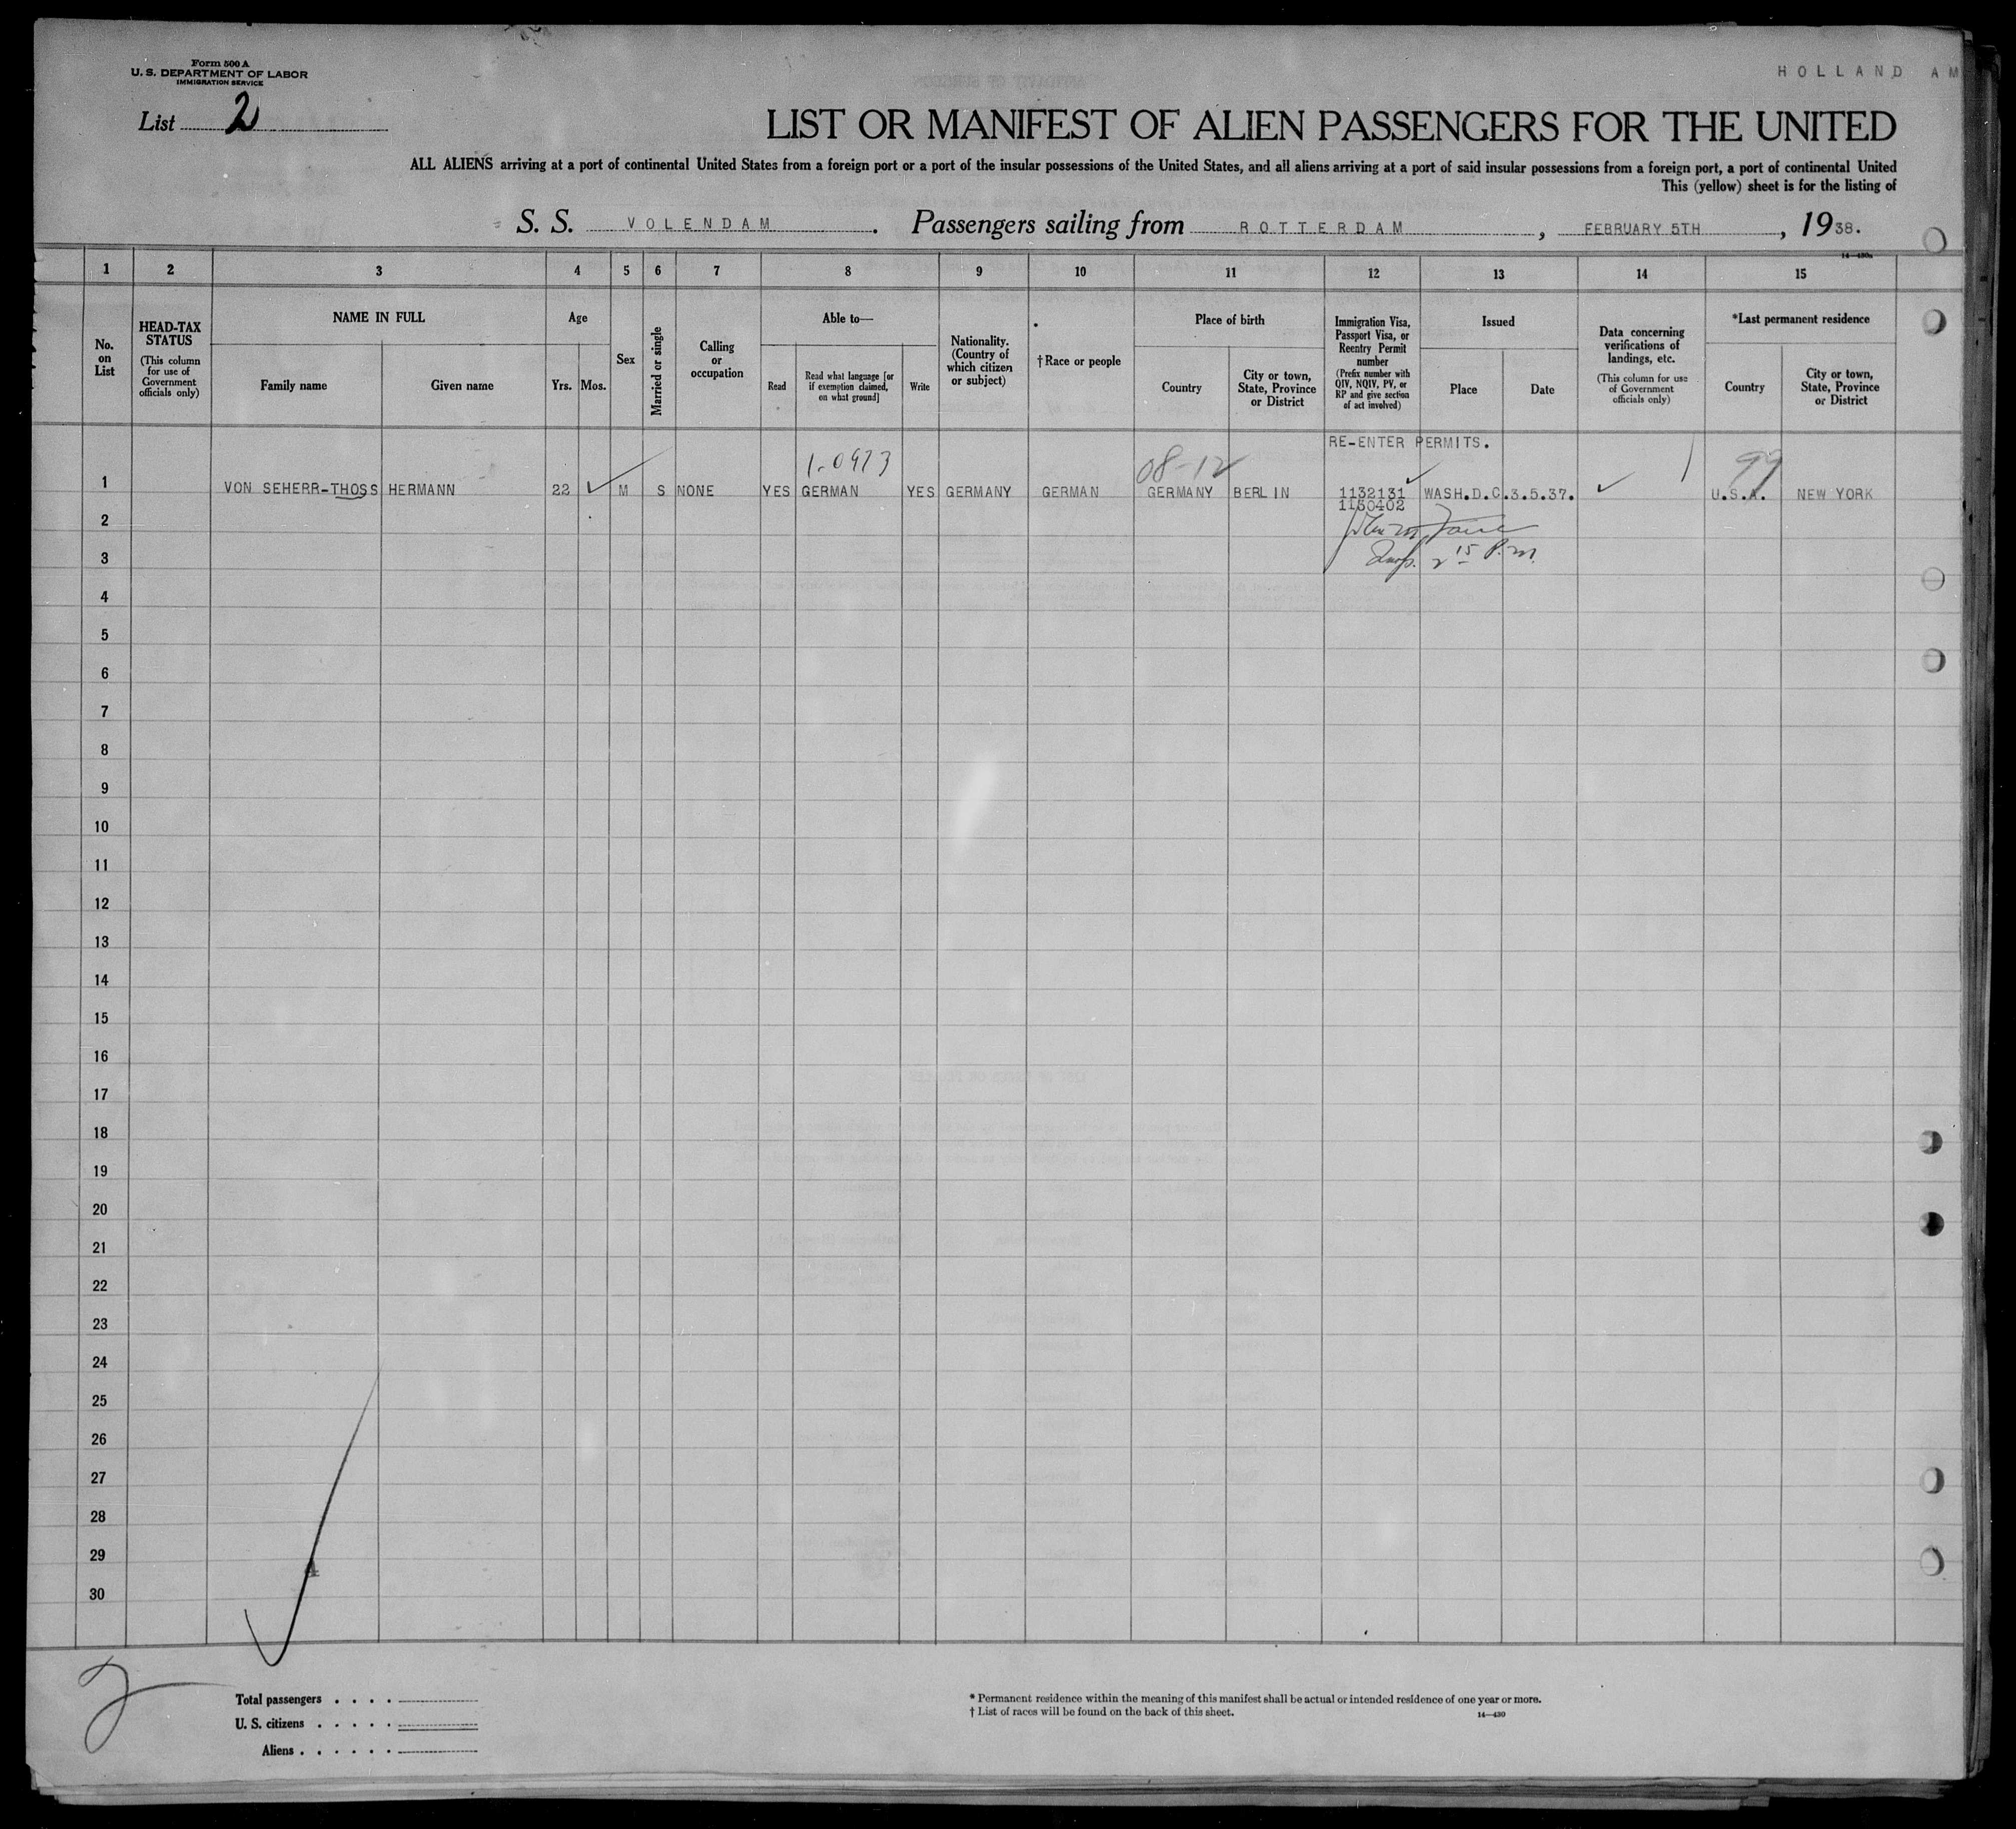 Form 500 A
U. S. DEPARTMENT OF LABOR
IMMIGRATION SERVICE
HOLLAND AM
List 2
LIST OR MANIFEST OF ALIEN PASSENGERS FOR THE UNITED
ALL ALIENS arriving at a port of continental United States from a foreign port or a port of the insular possessions of the United States, and all aliens arriving at a port of said insular possessions from a foreign port, a port of continental United
This (yellow) sheet is for the listing of
S. S. VOLENDAM. Passengers sailing from ROTTERDAM, FEBRUARY 5TH, 1938.
14—430a
1 2 3 4 5 6 7 8 9 10 11 12 13 14 15
No. on List
HEAD-TAX STATUS
(This column for use of Government officials only)
NAME IN FULL
Family name
Given name
Age
Yrs.
Mos.
Sex
Married or single
Calling or occupation
Able to—
Read
Read what language [or if exemption claimed, on what ground]
Write
Nationality. (Country of which citizen or subject)
†Race or people
Place of birth
Country
City or town, State, Province or District
Immigration Visa, Passport Visa, or Reentry Permit number
(Prefix number with QIV, NQIV, PV, or RP and give section of act involved)
Issued
Place
Date
Data concerning verifications of landings, etc.
(This column for use of Government officials only)
*Last permanent residence
Country
City or town, State, Province or District
RE-ENTER PERMITS.
1-0973
08-12
99
1 VON SEHERR-THOSS HERMANN 22 M S NONE YES GERMAN YES GERMANY GERMAN GERMANY BERLIN 1132131 WASH.D.C.3.5.37. U.S.A. NEW YORK
1150402
2
Insp. 2 15 P.M.
3
4
5
6
7
8
9
10
11
12
13
14
15
16
17
18
19
20
21
22
23
24
25
26
27
28
29
30
2
Total passengers . . . .
U. S. citizens . . . . .
Aliens . . . . . .
* Permanent residence within the meaning of this manifest shall be actual or intended residence of one year or more.
† List of races will be found on the back of this sheet.
14—430